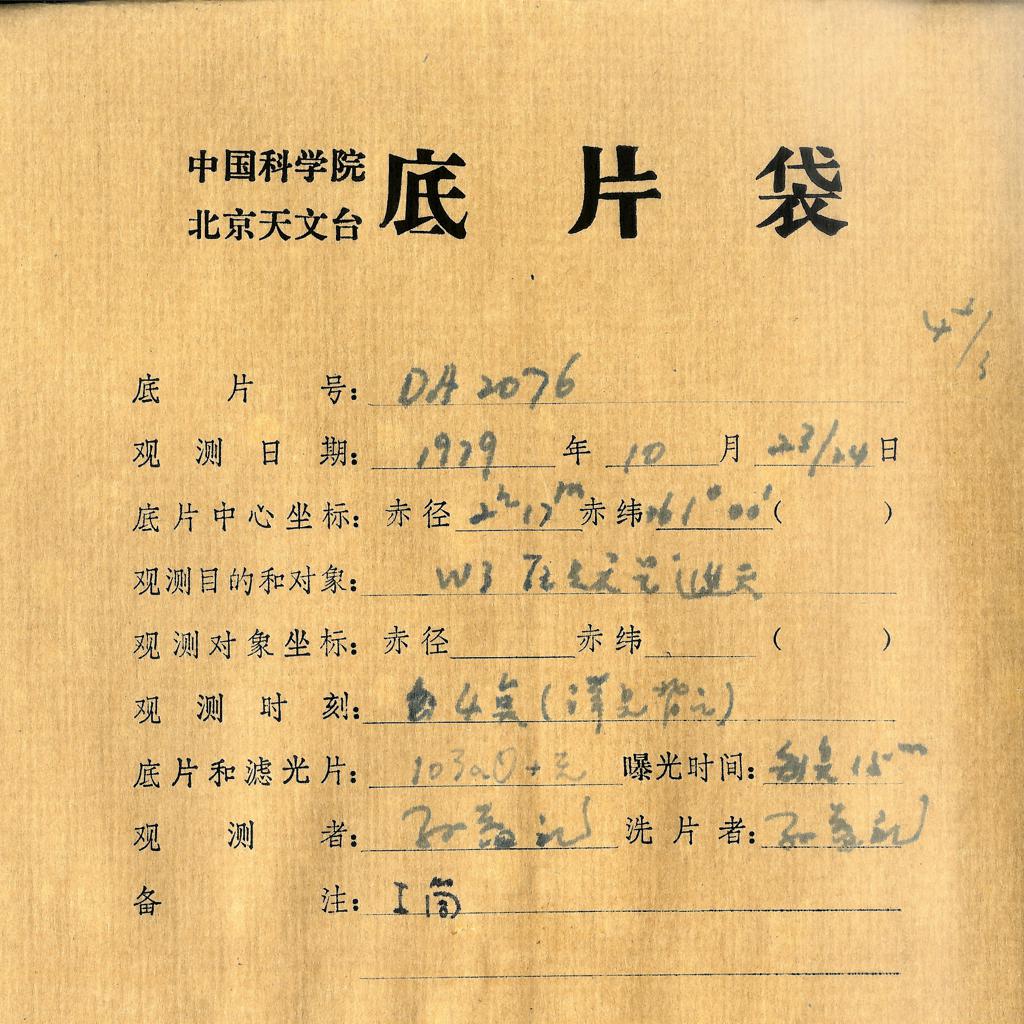 中国科学院
北京天文台
底片袋
底片号: DA 2076
观测日期: 1979 年 10 月 23/24 日
底片中心坐标: 赤径 2ʰ 17ᵐ 赤纬 61° 00′ ( )
观测目的和对象: W3
观测对象坐标: 赤径 赤纬 ( )
观测时刻: 4
底片和滤光片: 103aO + 无 曝光时间: 15ᵐ
观测者: 孙益礼 洗片者: 孙益礼
备注: I 筒